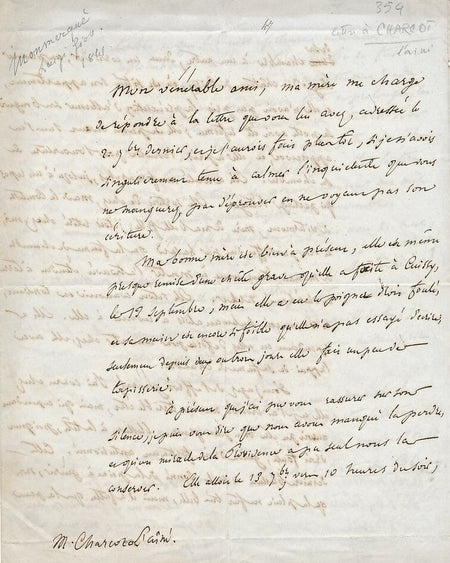 354
lettre à CHARCOT
l'ainé
Monmerqué
1841
Mon vénérable ami, ma mère me charge
de répondre à la lettre que vous lui avez adressée le
2. 7bre dernier, et je l'aurois fait plutôt, si je n'avois
singulièrement tenu à calmer l'inquiétude que vous
ne manquerez pas d'éprouver en ne voyant pas son
écriture.
Ma bonne mère est bien à présent, elle est même
presque remise d'une chûte grave qu'elle a faite à
le 19 septembre, mais elle a eu le poignet droit foulé,
et sa main est encore si foible qu'elle n'a pas essayé d'écrire;
seulement depuis deux ou trois jours elle fait un peu de
tapisserie.
à présent que j'ai pu vous rassurer sur son
silence, je puis vous dire que nous avons manqué la perdre,
et qu'un miracle de la Providence a pu seul nous la
conserver. Elle alloit le 13 7bre, vers 10 heures du soir,
M. Charcot l'aîné.